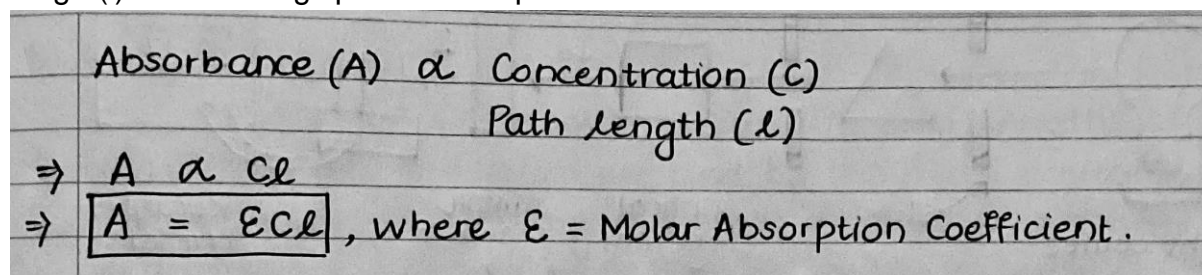 Absorbance (A) α Concentration (C)
Path length (l)
⇒ A α Cl
⇒ A = εCl, where ε = Molar Absorption Coefficient.